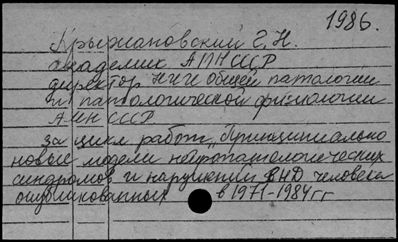 1986.
Крыжановский Г.Н.
академик АМН СССР
директор НИИ общей патологии
и патологической физиологии
АМН СССР
за цикл работ „Принципиально
новые модели нейропатологических
синдромов и нарушений ВНД человека
опубликованных в 1971-1984 гг